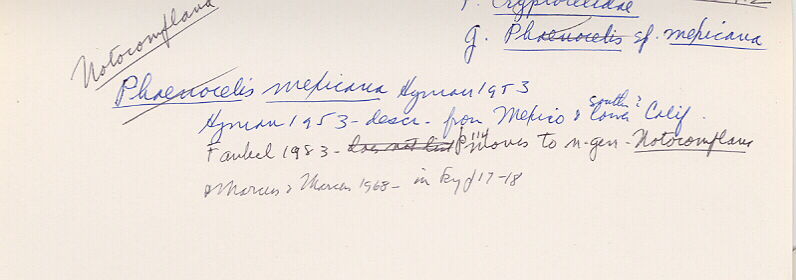 F. Cryptocelidae
g. Phaenocelis sp. mexicana
Notocomplana
Phaenocelis mexicana Hyman 1953
southern?
Hyman 1953 - descr. from Mexico & Lower Calif.
Faubel 1983 - does not list P 114 moves to n. gen - Notocomplana
& Marcus & Marcus 1968 - in key p 17-18